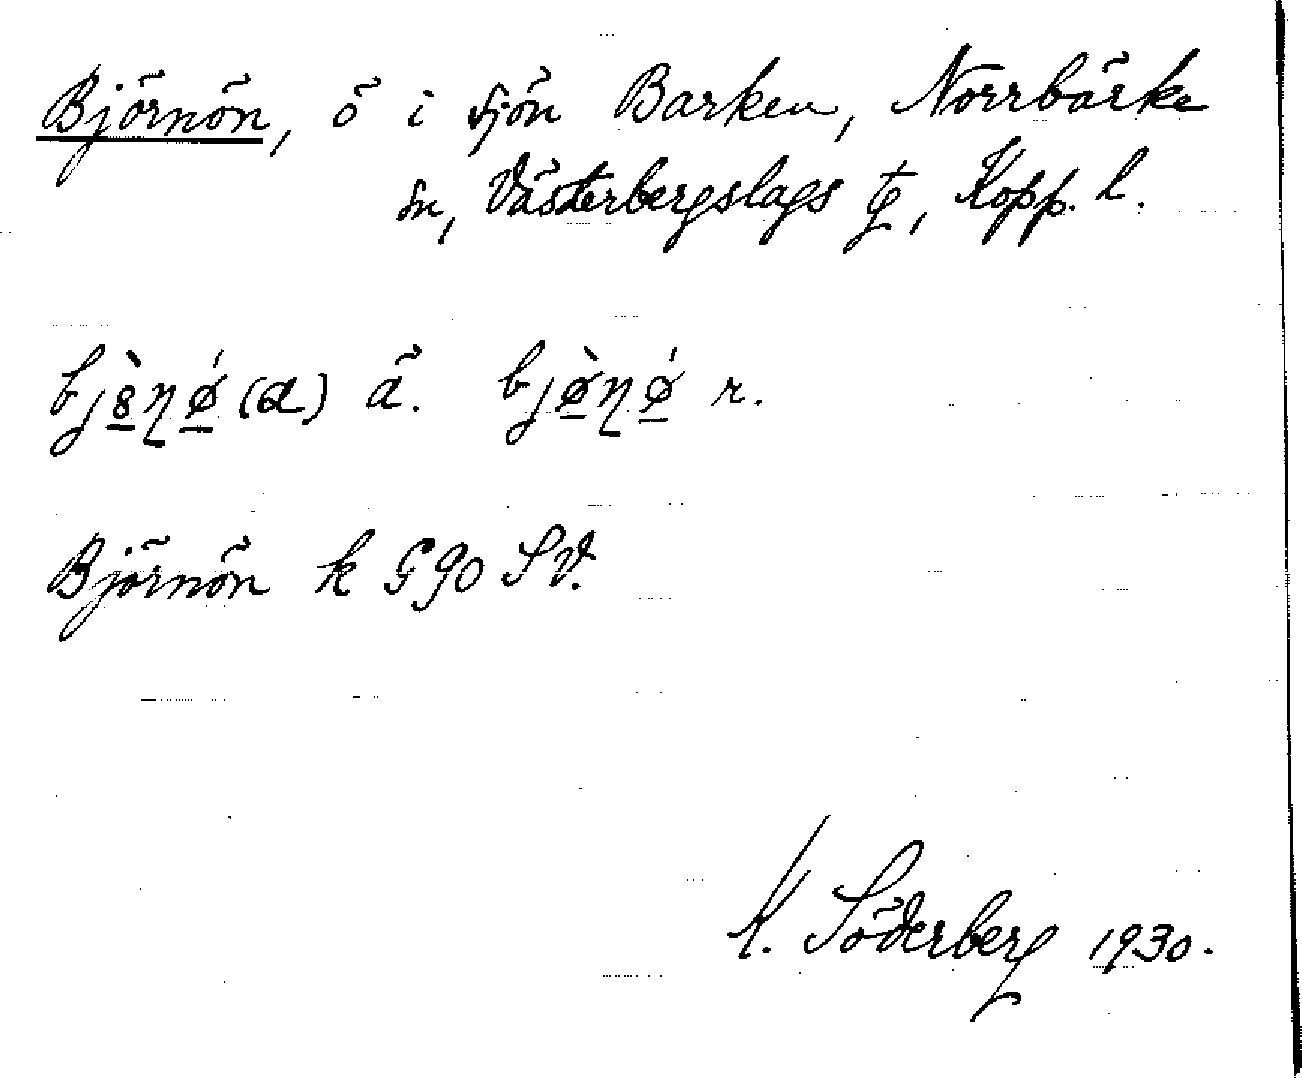 Björnön, ö i sjön Barken, Norrbärke
sn, Västerbergslags tg, Kopp. l.
bjȣ̀ɳǿ(a) ä. bjø̀ɳǿ r.
Björnön k G90 SV.
K. Söderberg 1930.